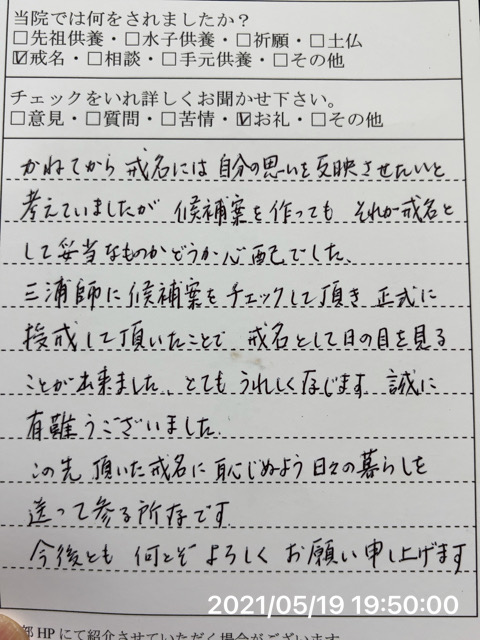 当院では何をされましたか？
□先祖供養・□水子供養・□祈願・□土仏
☑戒名・□相談・□手元供養・□その他
チェックをいれ詳しくお聞かせ下さい。
□意見・□質問・□苦情・☑お礼・□その他
かねてから 戒名には 自分の思いを反映させたいと
考えていましたが 候補案を作っても それが戒名と
して妥当なものかどうか心配でした、
三浦師に候補案をチェックして頂き 正式に
授戒して頂いたことで 戒名として日の目を見る
ことが出来ました、とてもうれしく存じます 誠に
有難うございました。
この先 頂いた戒名に恥じぬよう 日々の暮らしを
送って参る所存です
今後とも 何とぞ よろしく お願い申し上げます
2021/05/19 19:50:00
部HPにて紹介させていただく場合がございます